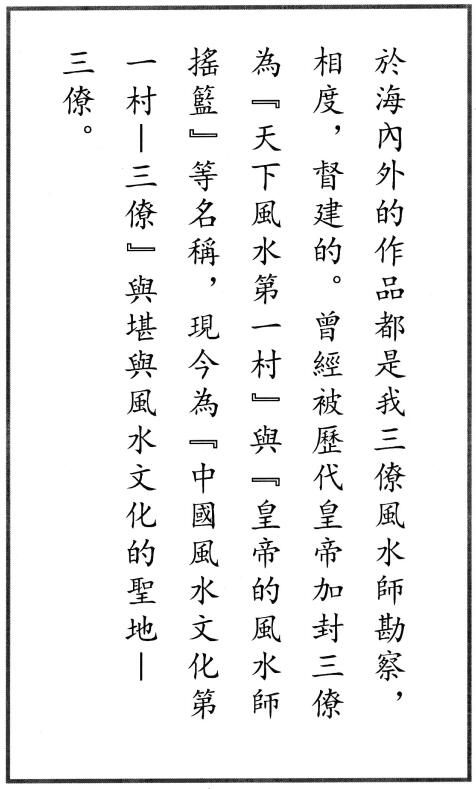 於海內外的作品都是我三僚風水師勘察，
相度，督建的。曾經被歷代皇帝加封三僚
為『天下風水第一村』與『皇帝的風水師
搖籃』等名稱，現今為『中國風水文化第
一村—三僚』與堪與風水文化的聖地—
三僚。